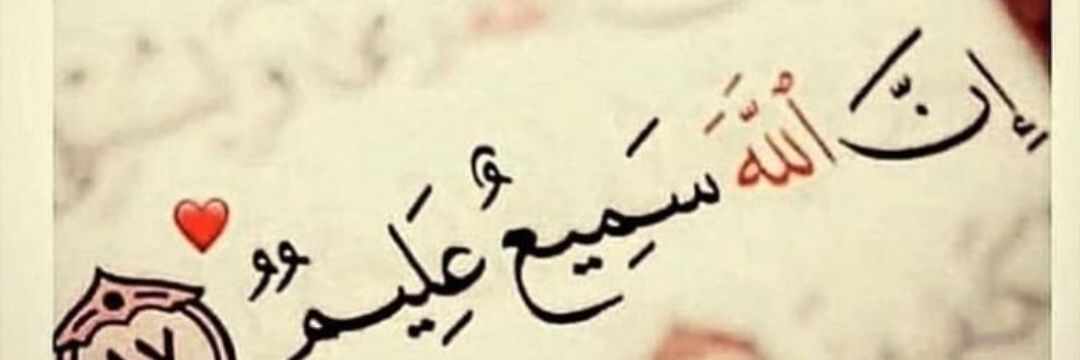 إِنَّ ٱللَّهَ سَمِيعٌ عَلِيمٌ